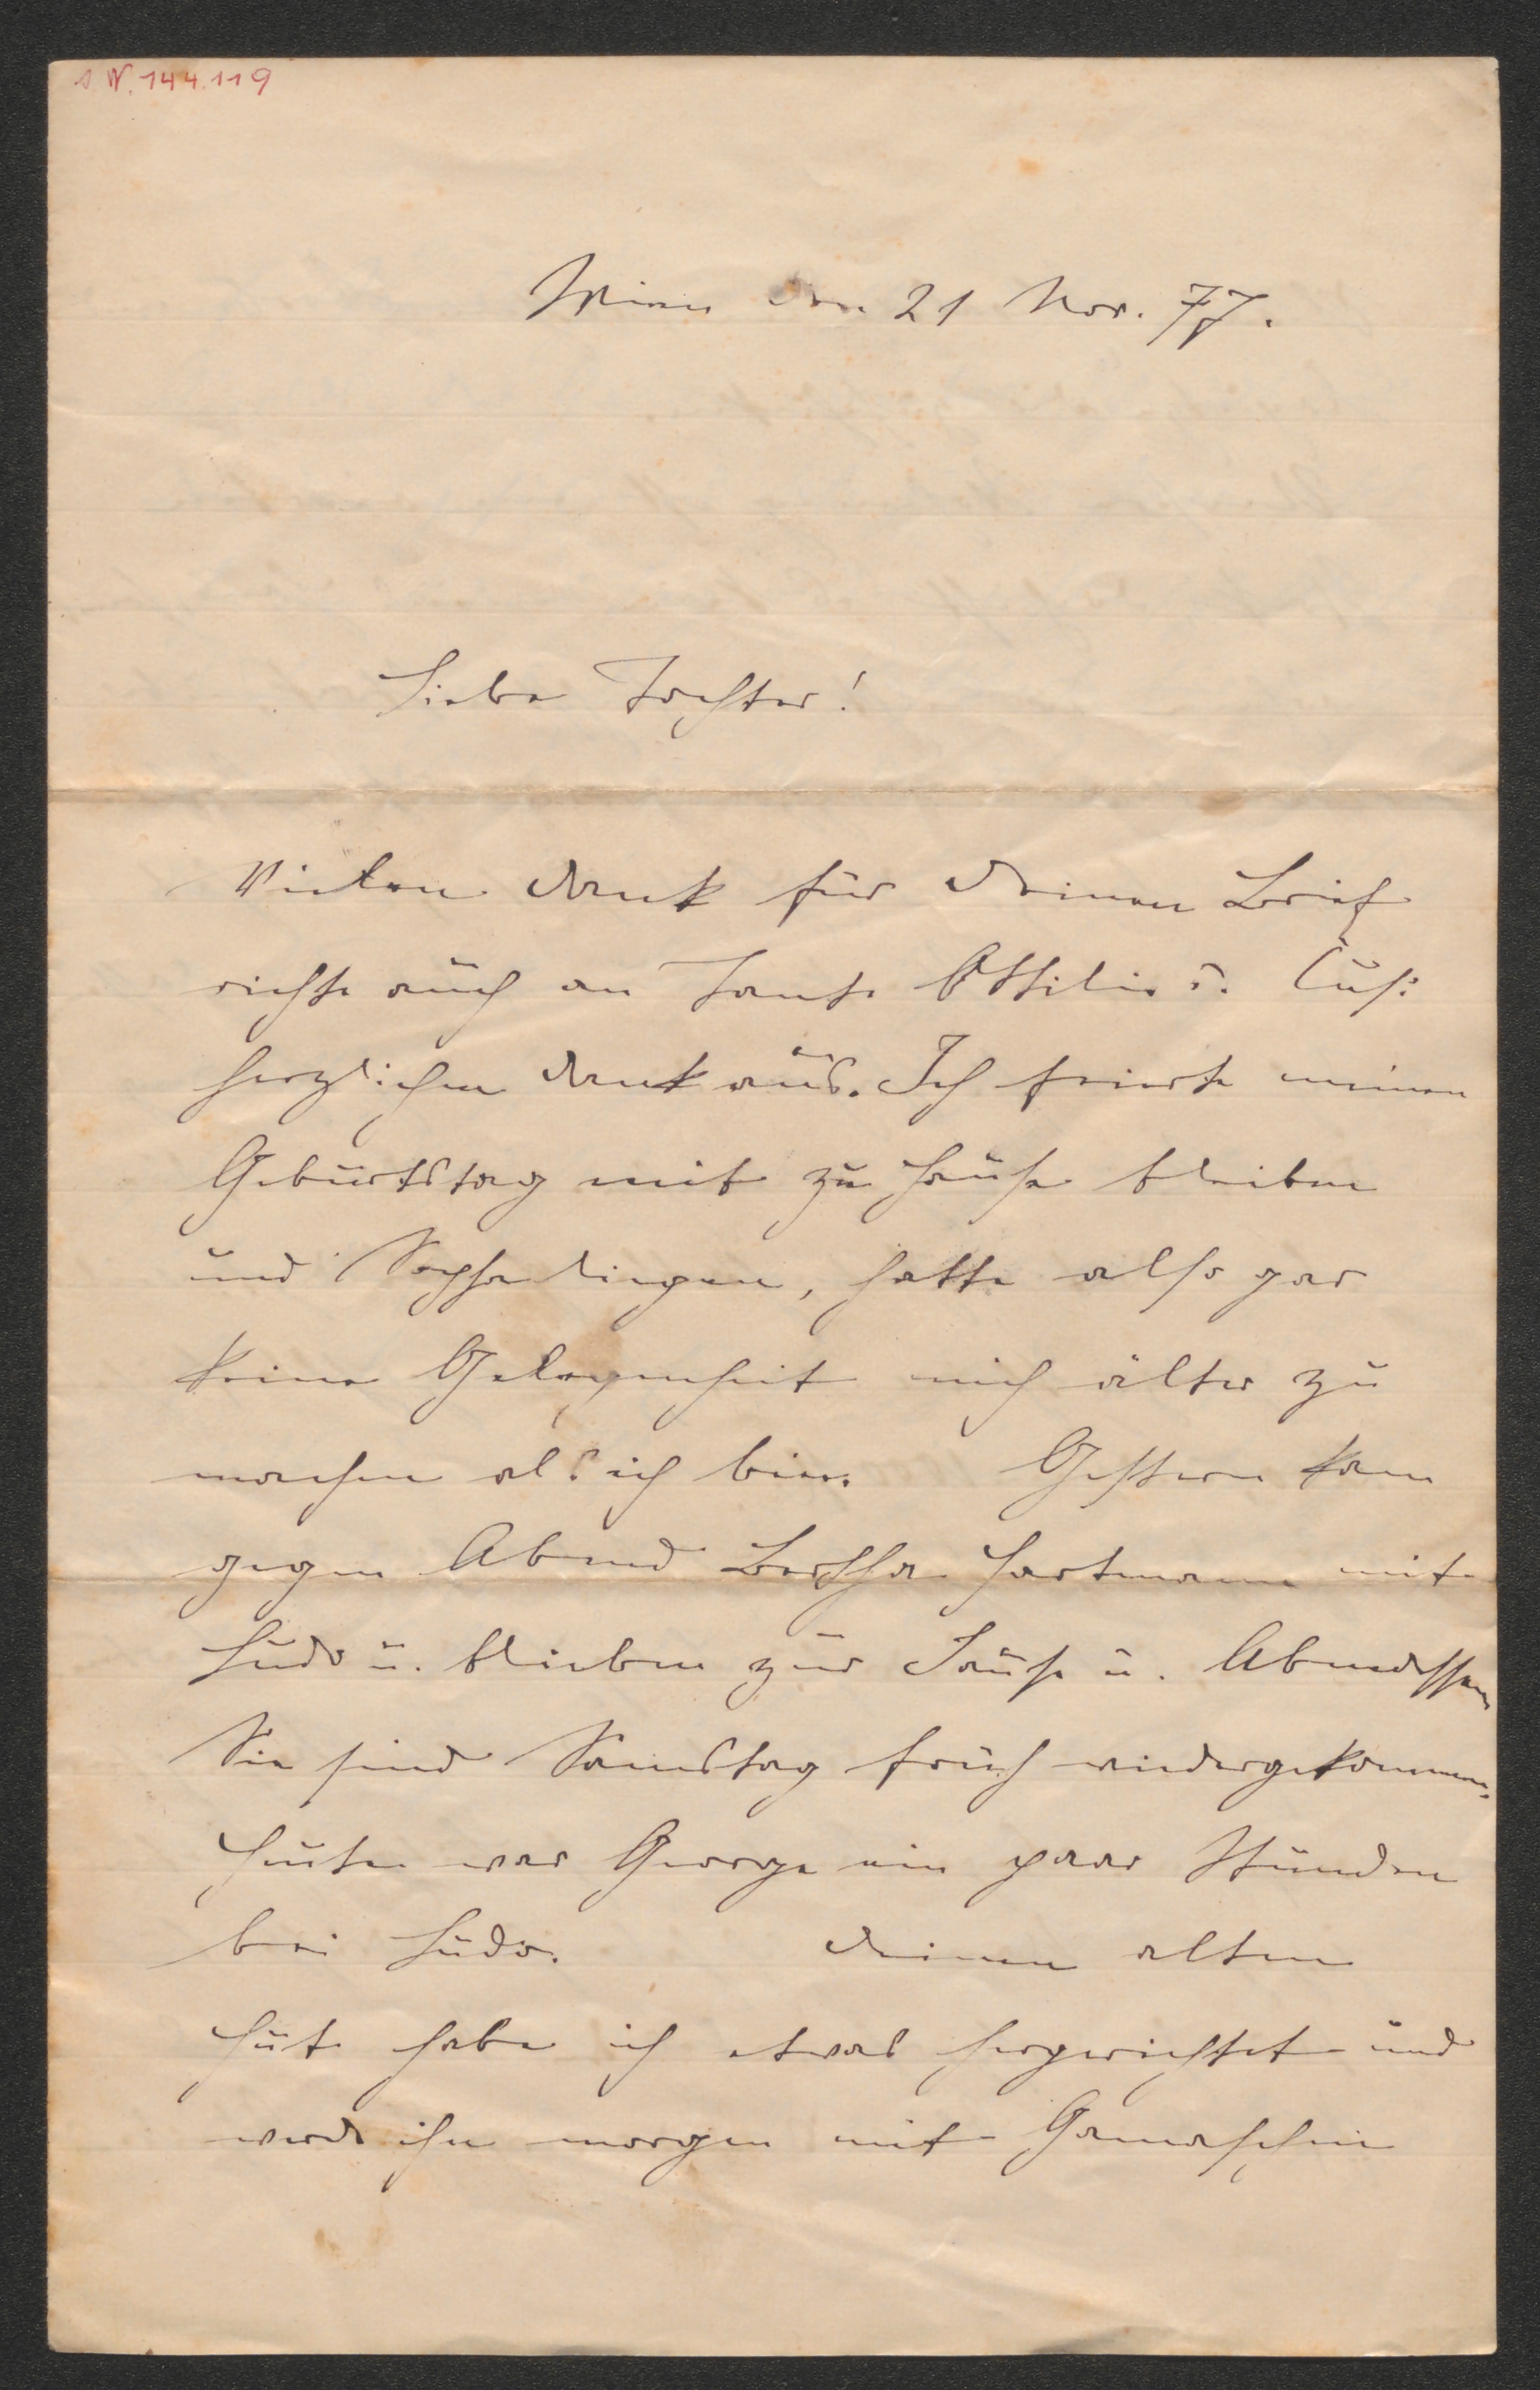 1 N. 144.119
Wien den 21 Nov. 77.
Liebe Tochter!
Vielen Dank für Deinen Brief
richte auch an Tante Ottilie u.
herzlichen Dank aus. Ich feierte meinen
Geburtstag mit zu Hause bleiben
und Sopha liegen, hatte also gar
keine Gelegenheit mich älter zu
machen als ich bin. Gestern kam
gegen Abend Bertha Hartmann mit
Ludo u. blieben zur Jause u. Abendessen
Sie sind Samstag früh wiedergekommen.
Heute war George ein paar Stunden
bei Ludo. Deinen alten
Hut habe ich etwas hergerichtet und
werde ihn morgen mit Gamaschen